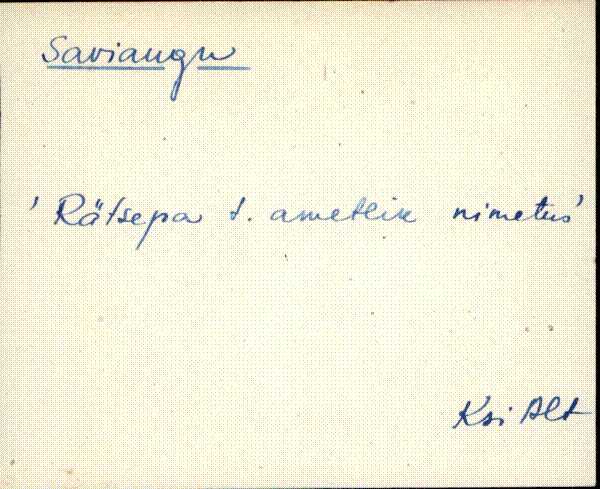 Saviaugu
' Rätsepa t. ametlik nimetus'
Ksi Alt